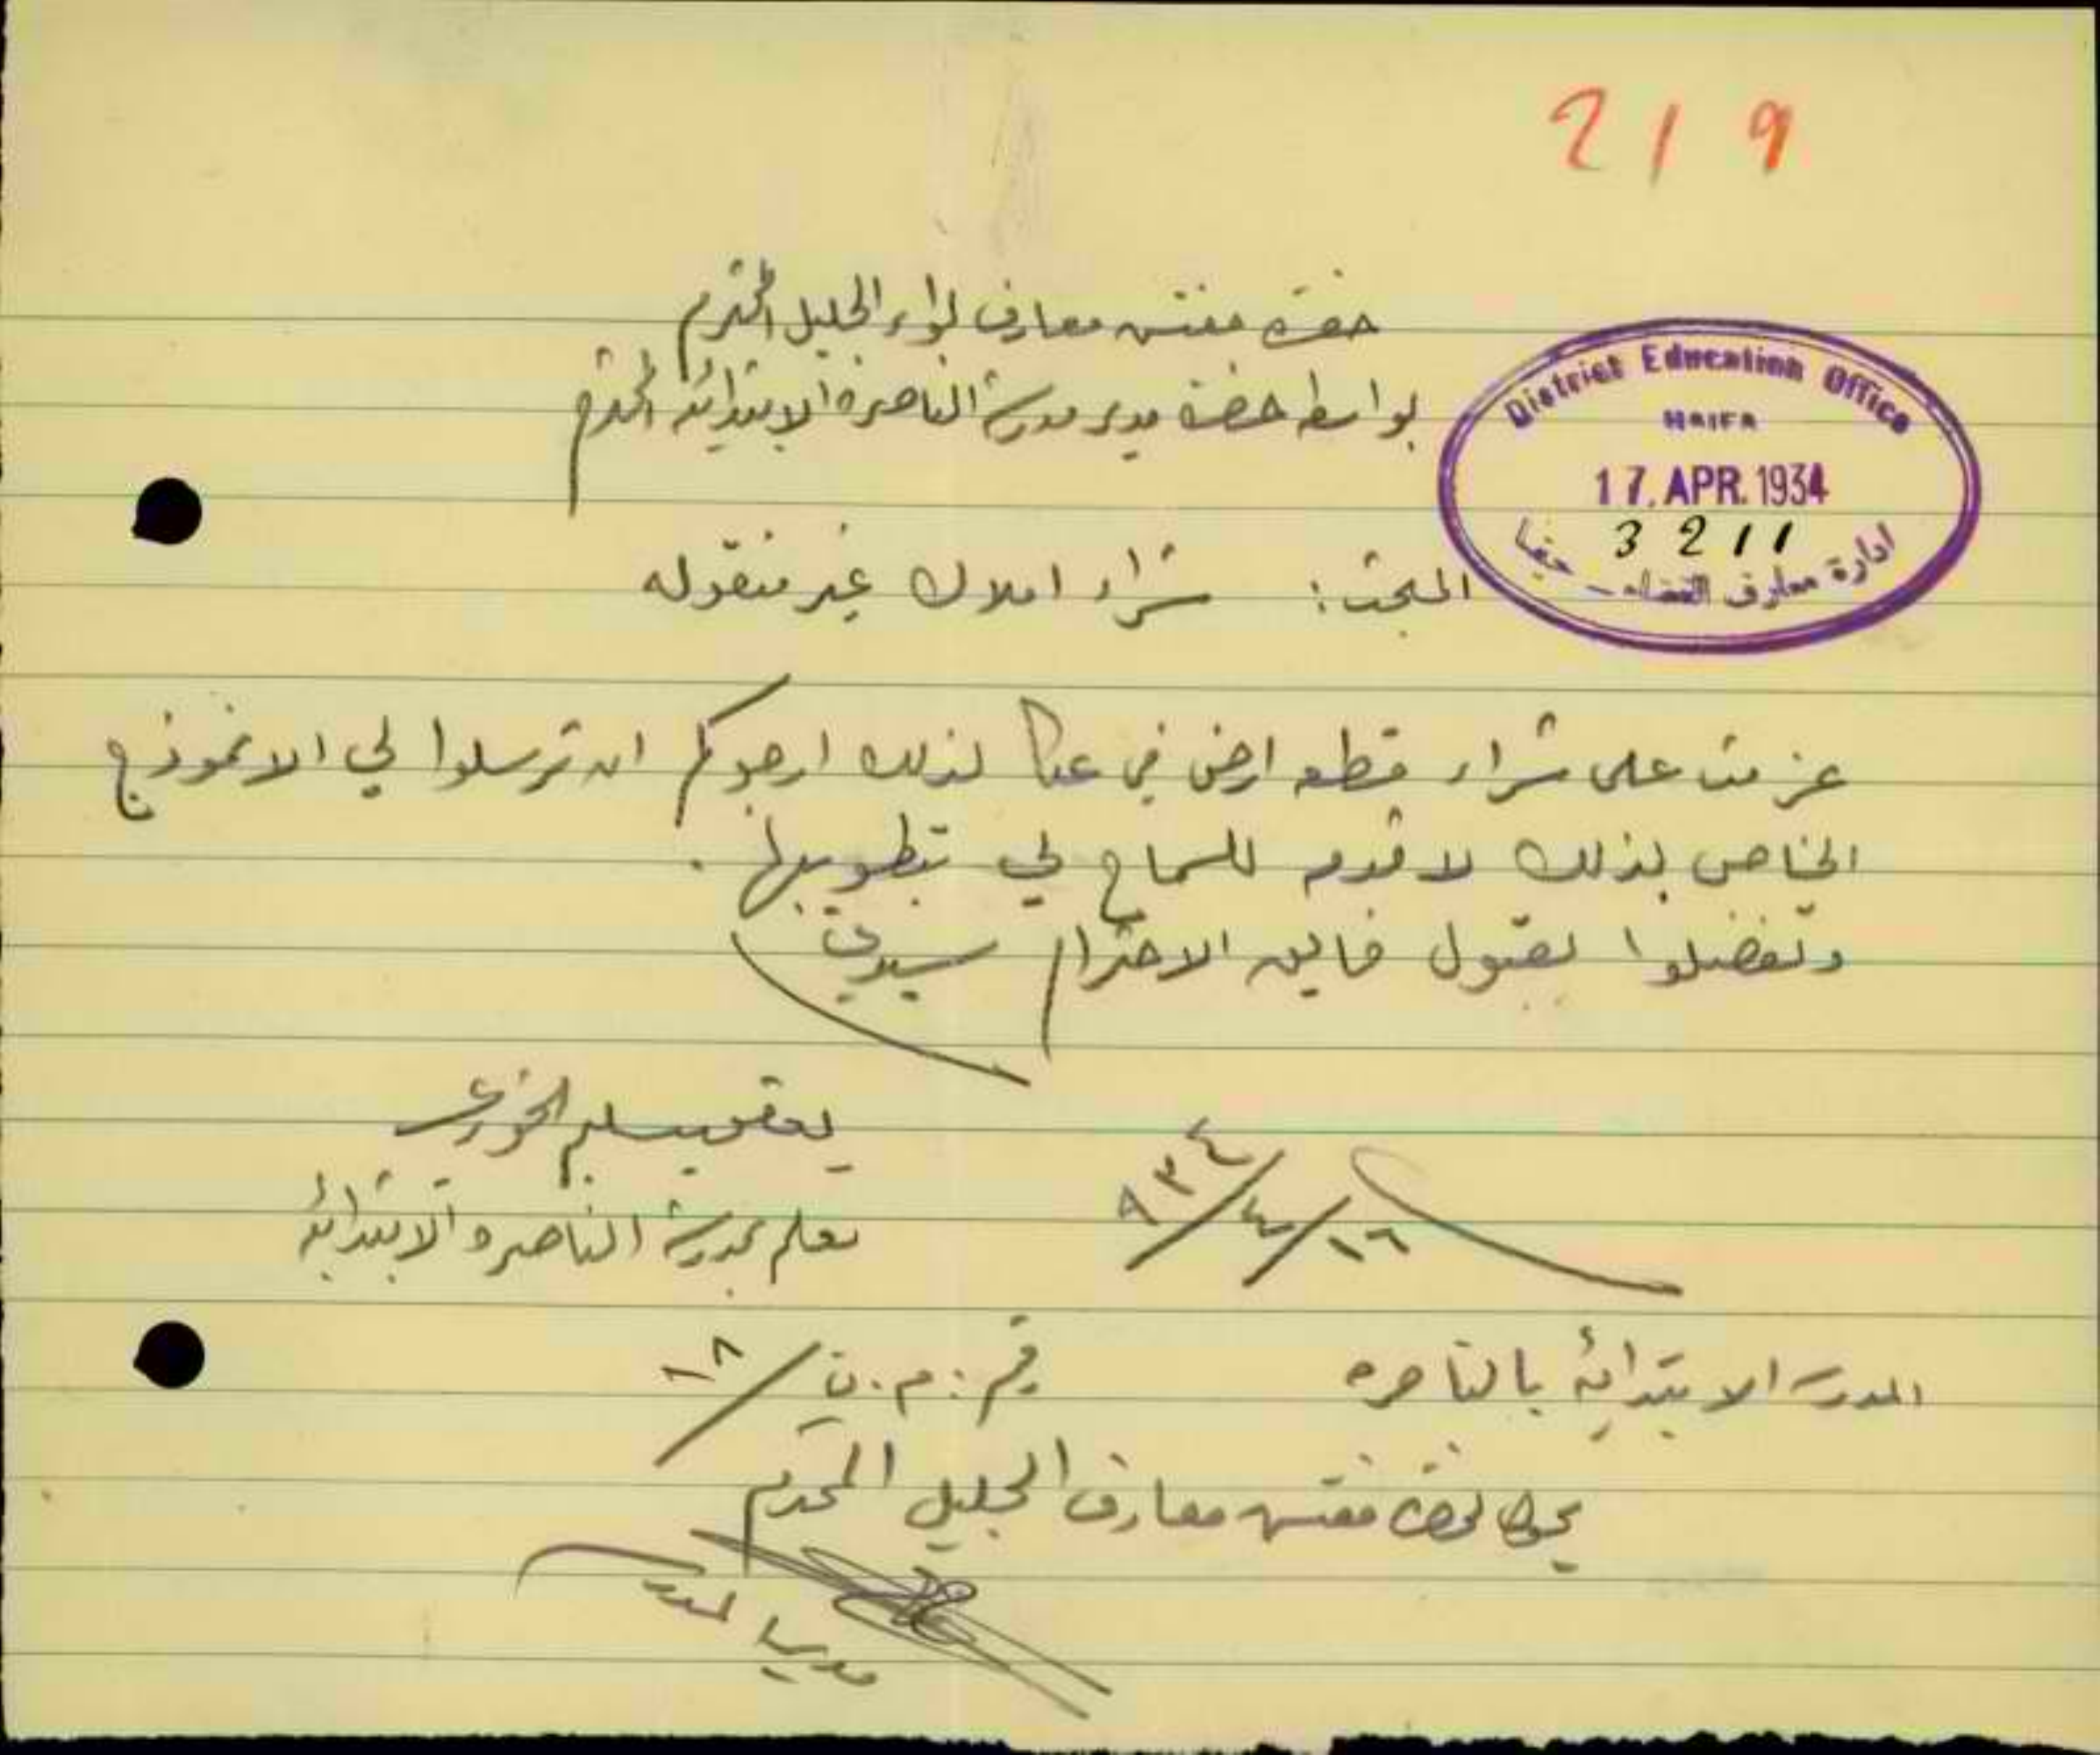 219
حضرة مفتش معارف لواء الجليل المحترم
بواسطة حضرة مدير مدرسة الناصرة الابتدائية المحترم
District Education Office
HAIFA
17. APR. 1934
3211
ادارة معارف القضاء - حيفا
المبحث : شراء املاك غير منقوله
عزمت على شراء قطعه ارض في عكا لذلك ارجوكم ان ترسلوا لي الانموذج
الخاص بذلك لاقدم للسماح لي بتطويبها .
وتفضلوا بقبول فايق الاحترام سيدي
يعقوب سليم الخوري
معلم بمدرسة الناصره الابتدائية
١٦/٤/٩٣٤
المدرسة الابتدائية بالناصره
رقم : م . ن / ١٨
يحول لحضرة مفتش معارف الجليل المحترم
مدير المدرسة